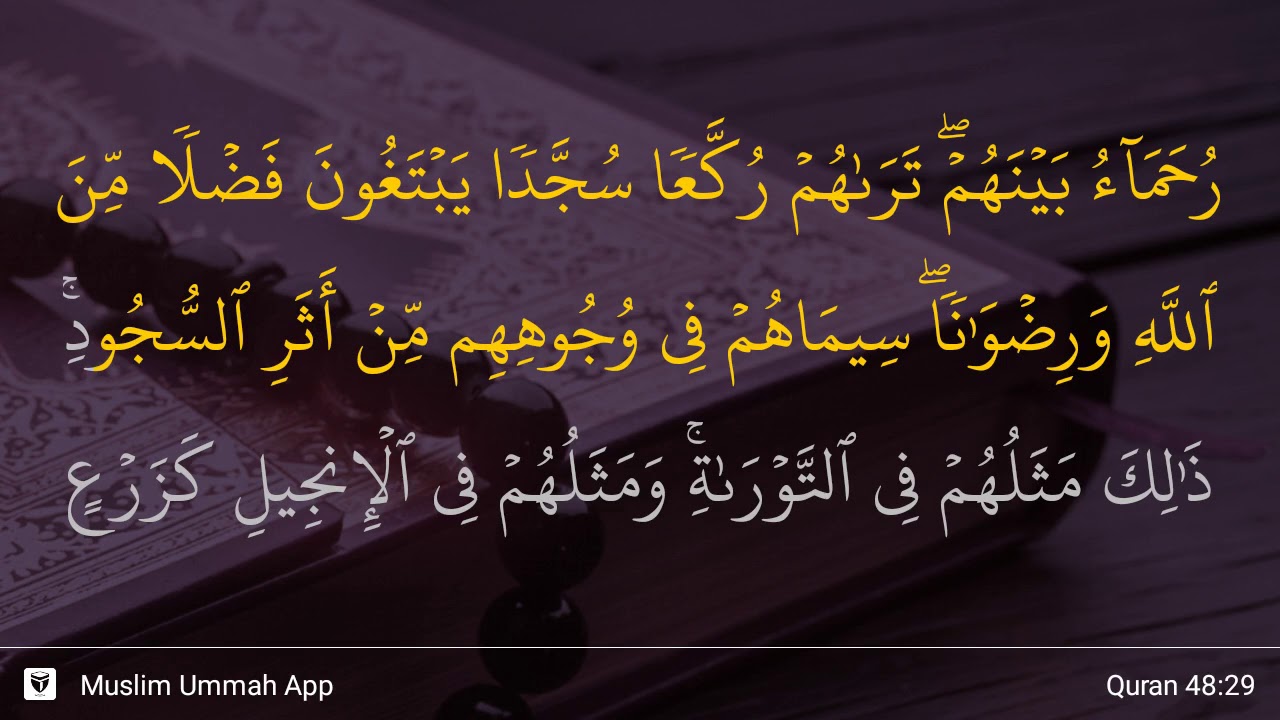 رُحَمَآءُ بَيْنَهُمْ ۖ تَرَىٰهُمْ رُكَّعًا سُجَّدًا يَبْتَغُونَ فَضْلًا مِّنَ
ٱللَّهِ وَرِضْوَٰنًا ۖ سِيمَاهُمْ فِى وُجُوهِهِم مِّنْ أَثَرِ ٱلسُّجُودِ ۚ
ذَٰلِكَ مَثَلُهُمْ فِى ٱلتَّوْرَىٰةِ ۚ وَمَثَلُهُمْ فِى ٱلْإِنجِيلِ كَزَرْعٍ
Muslim Ummah App
Quran 48:29